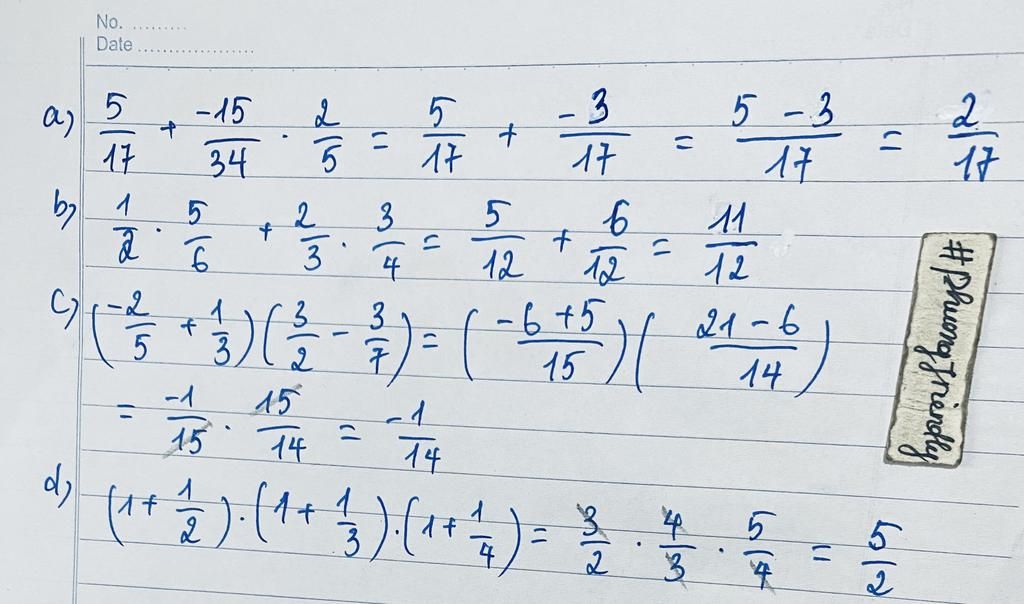 No. .........
Date ...................
a) 5/17 + -15/34 · 2/5 = 5/17 + -3/17 = 5 - 3/17 = 2/17
b) 1/2 · 5/6 + 2/3 · 3/4 = 5/12 + 6/12 = 11/12
c) (-2/5 + 1/3)(3/2 - 3/7) = (-6 + 5/15)(21 - 6/14)
= -1/15 · 15/14 = -1/14
d) (1 + 1/2) · (1 + 1/3) · (1 + 1/4) = 3/2 · 4/3 · 5/4 = 5/2
#phuongfriendly